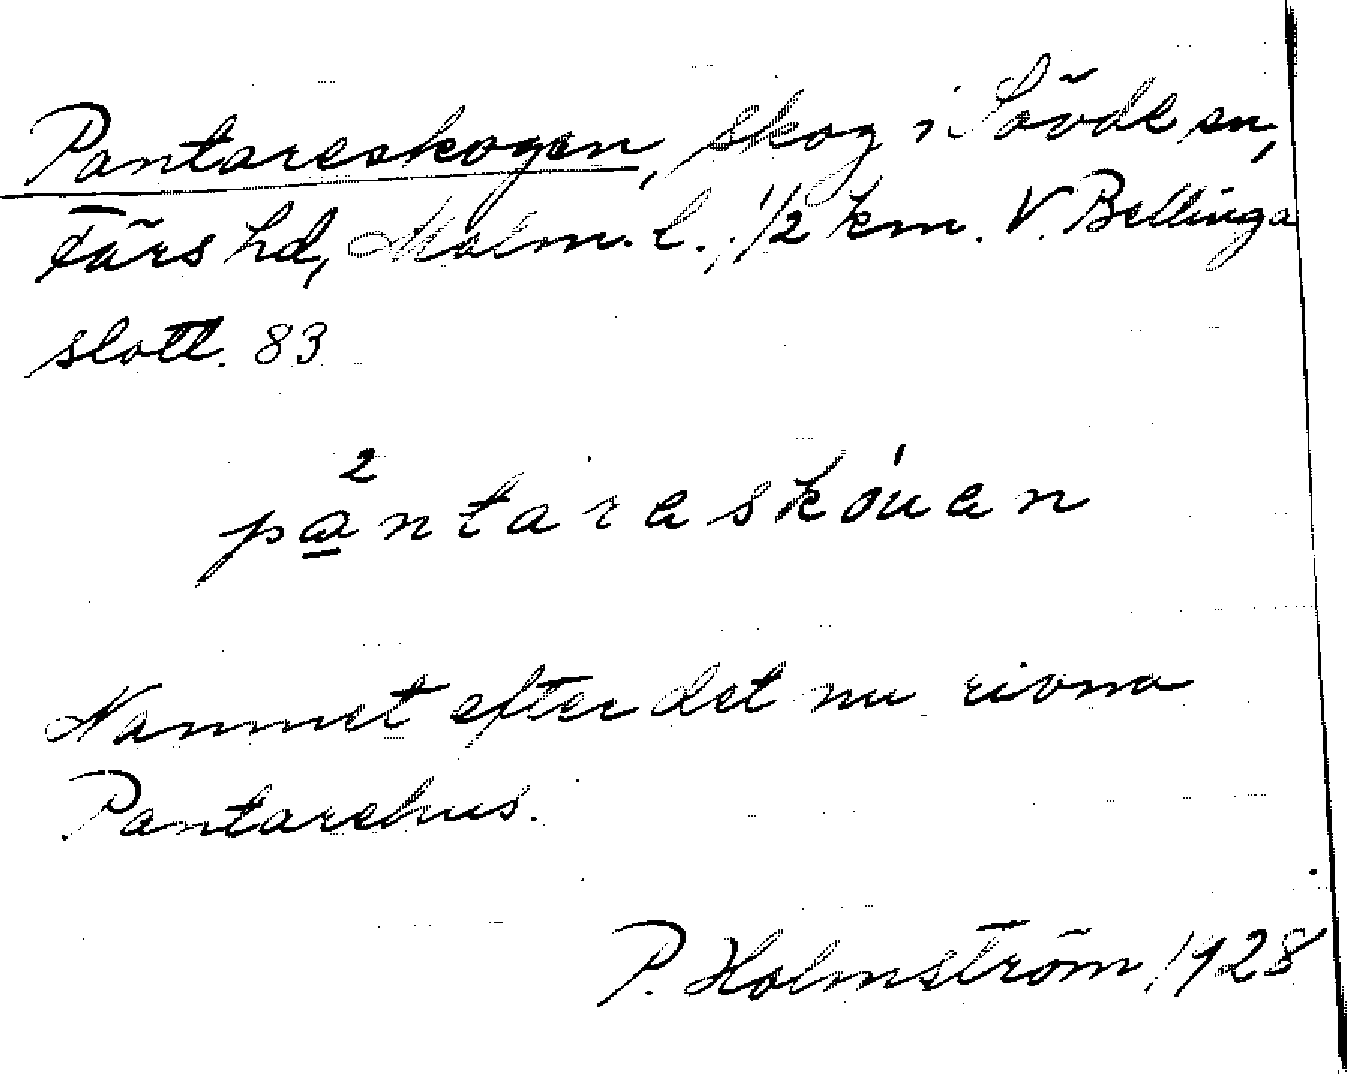 Pantareskogen, skog i Sövde sn,
Färs hd, Malm. l., 1/2 km. V. Bellinga
slott. 83
2
pantareskóuen
Namnet efter det nu rivna
Pantarehus.
P. Holmström, 1928